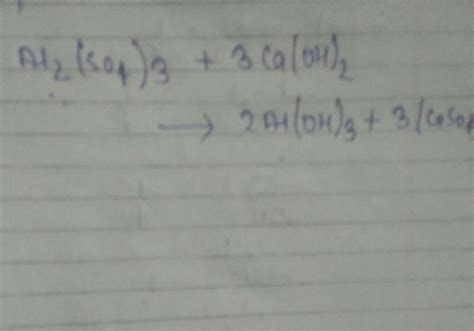 Al₂(SO₄)3 + 3Ca(OH)₂
⟶ 2Al(OH)₃ + 3(CaSO₄